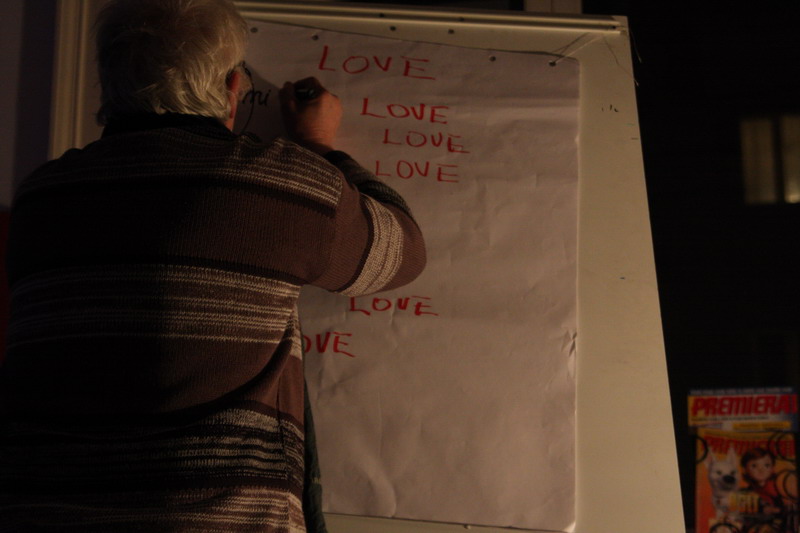 LOVE
mi
LOVE
LOVE
LOVE
LOVE
OVE
PREMIERA
PREMIERA